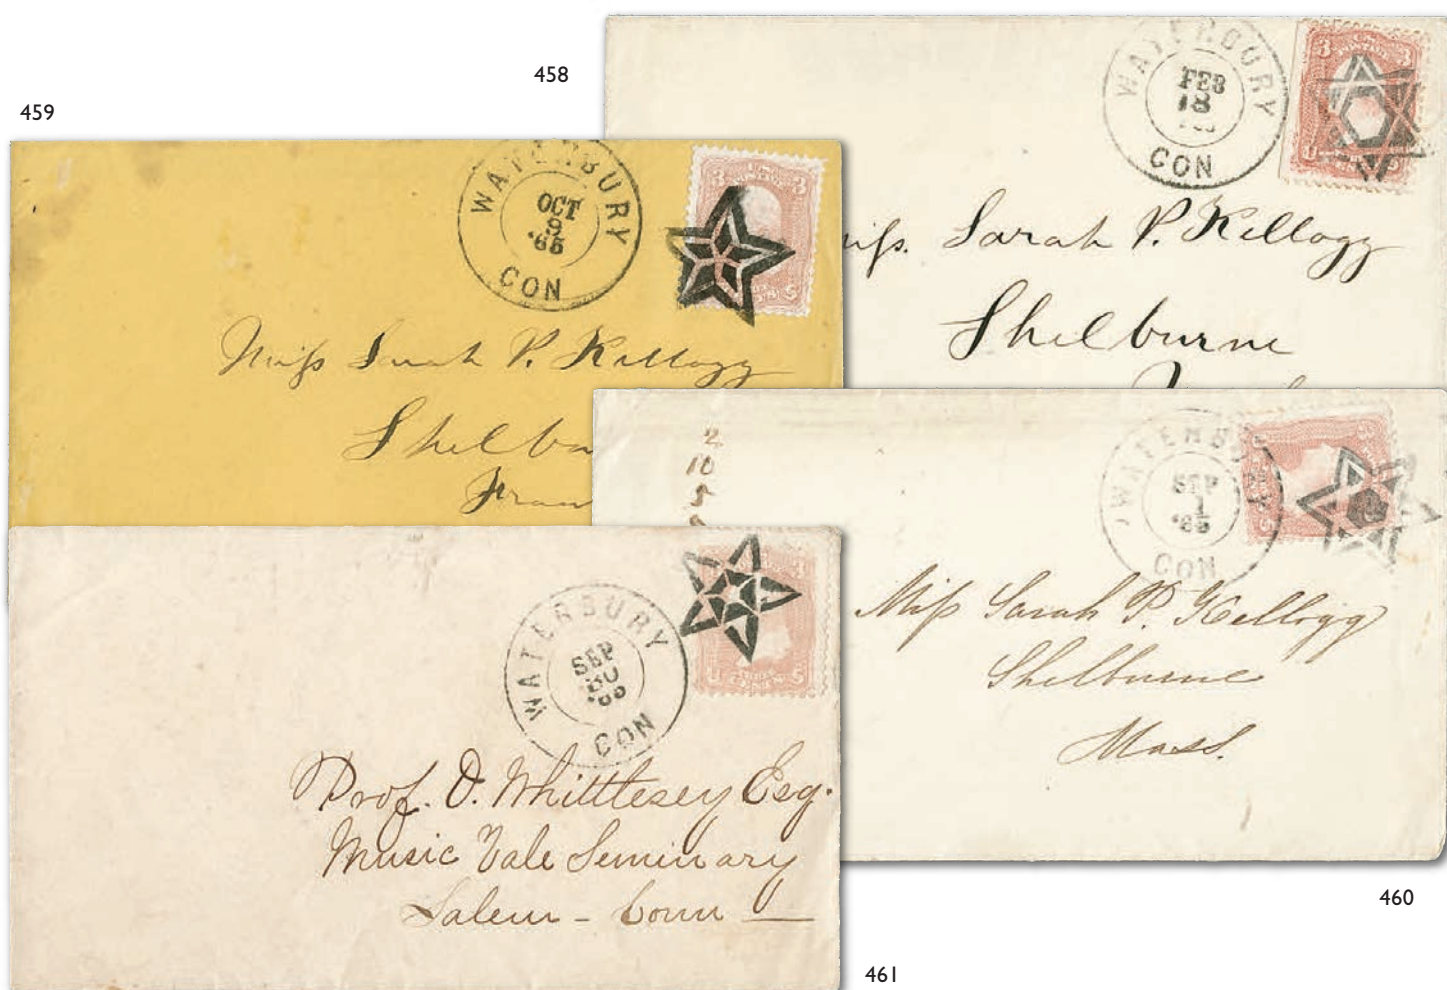 458
459
WATERBURY
FEB
18
CON
3 3
U.S.
POSTAGE
Miss. Sarah P. Kellogg
Shelburne
WATERBURY
OCT
9
'65
CON
3 3
Miss Sarah P. Kellogg
Shelbu
Fran
2
10
5
WATERBURY
SEP
1
'65
CON
Miss Sarah P. Kellogg
Shelburne
Mass.
460
WATERBURY
SEP
30
CON
Prof. O. Whittlesey Esq.
Music Vale Seminary
Salem - Conn
461